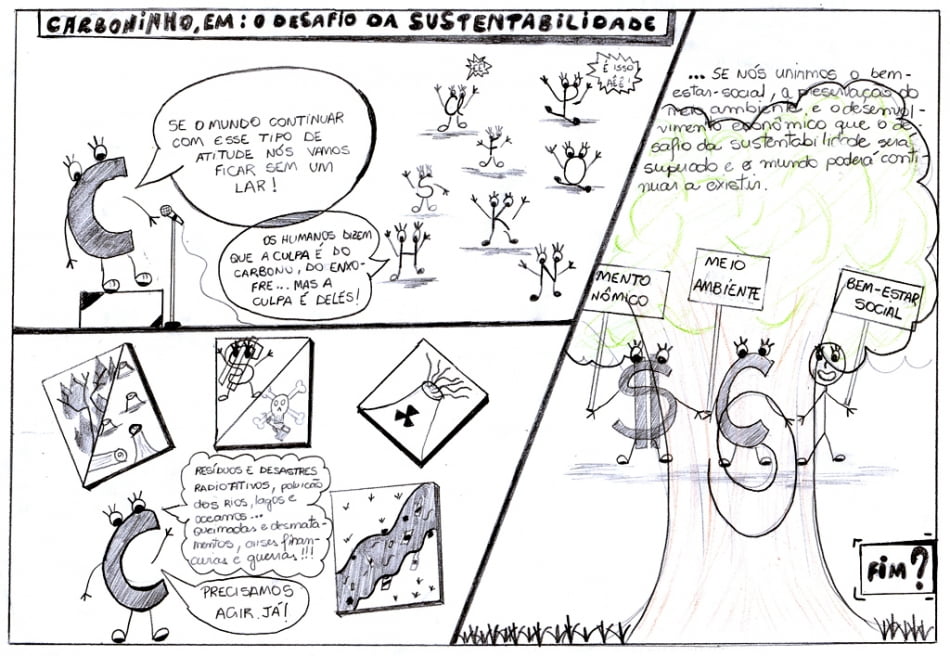 CARBONINHO, EM: O DESAFIO DA SUSTENTABILIDADE
SE O MUNDO CONTINUAR
COM ESSE TIPO DE
ATITUDE NÓS VAMOS
FICAR SEM UM
LAR!
É É!
É ISSO
AÊÊ!
OS HUMANOS DIZEM
QUE A CULPA É DO
CARBONO, DO ENXO-
FRE... MAS A
CULPA É DELES!
C
O
F
I
S
O
K
H
N
RESÍDUOS E DESASTRES
RADIOTATIVOS, poluição
dos RIOS, lagos e
oceanos...
queimadas e desmata-
mentos, crises finan-
ceiras e guerras!!!
PRECISAMOS
AGIR JÁ!
C
$
... SE NÓS UNIRMOS O bem-
estar-social, a preservação do
meio ambiente e o desenvol-
vimento econômico que o de
safio da sustentabilidade será
superado e o mundo poderá conti-
nuar a existir.
MENTO
NÔMICO
MEIO
AMBIENTE
BEM-ESTAR
SOCIAL
$
C
FIM?